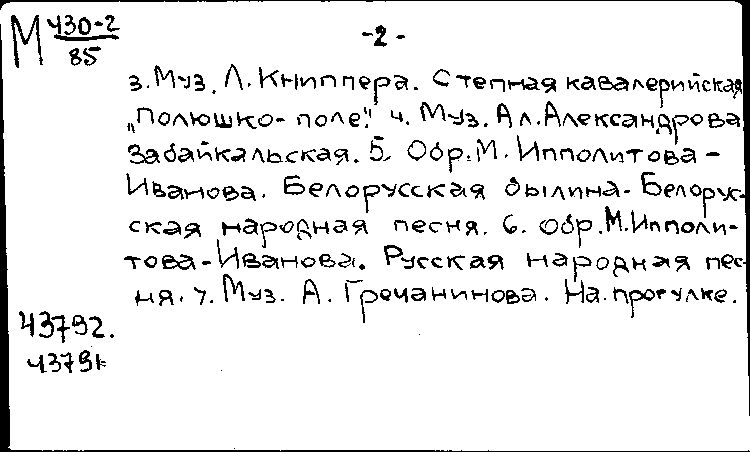 М 430-2
85
-2-
3. Муз. Л. Книппера. Степная кавалерийская
„Полюшко-поле". 4. Муз. Ал. Александрова
Забайкальская. 5. Обр. М. Ипполитова-
Иванова. Белорусская былина. Белорус-
ская народная песня. 6. Обр. М. Ипполи-
това-Иванова. Русская народная пес-
ня. 7. Муз. А. Гречанинова. На прогулке.
43792.
43791